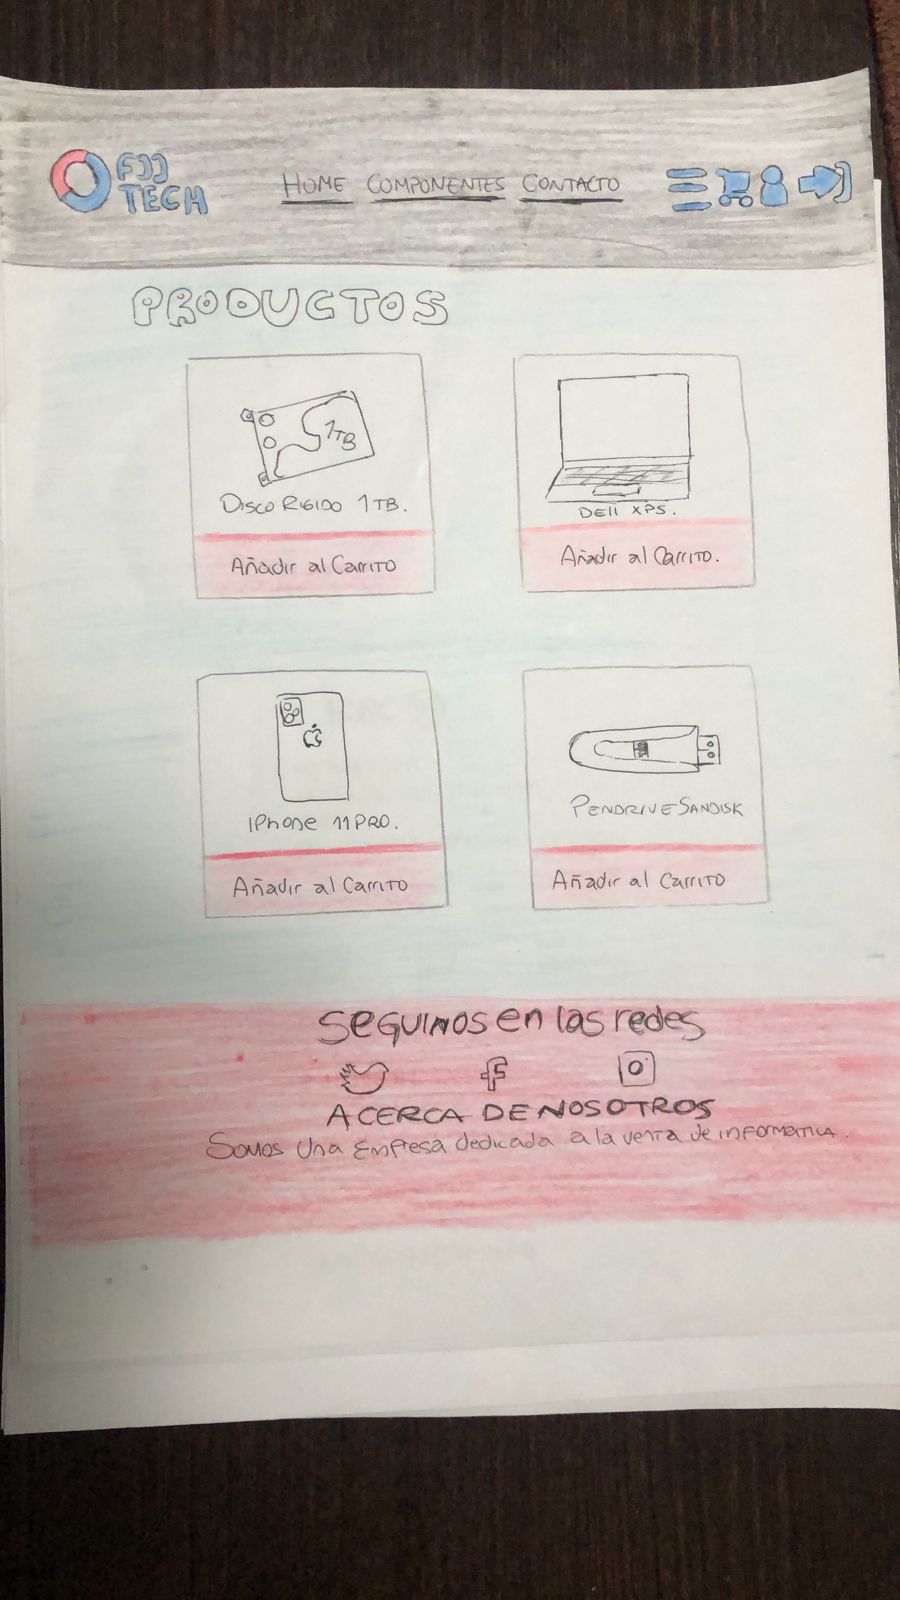 FJJ
TECH
HOME COMPONENTES CONTACTO
PRODUCTOS
1TB
DISCO RIGIDO 1TB.
Añadir al Carrito
Dell XPS.
Añadir al Carrito.
IPhone 11 PRO.
Añadir al Carrito
PENDRIVE SANDISK
Añadir al Carrito
SEGUINOS en las redes
ACERCA DE NOSOTROS
Somos Una Empresa dedicada a la venta de INFORMATICA.